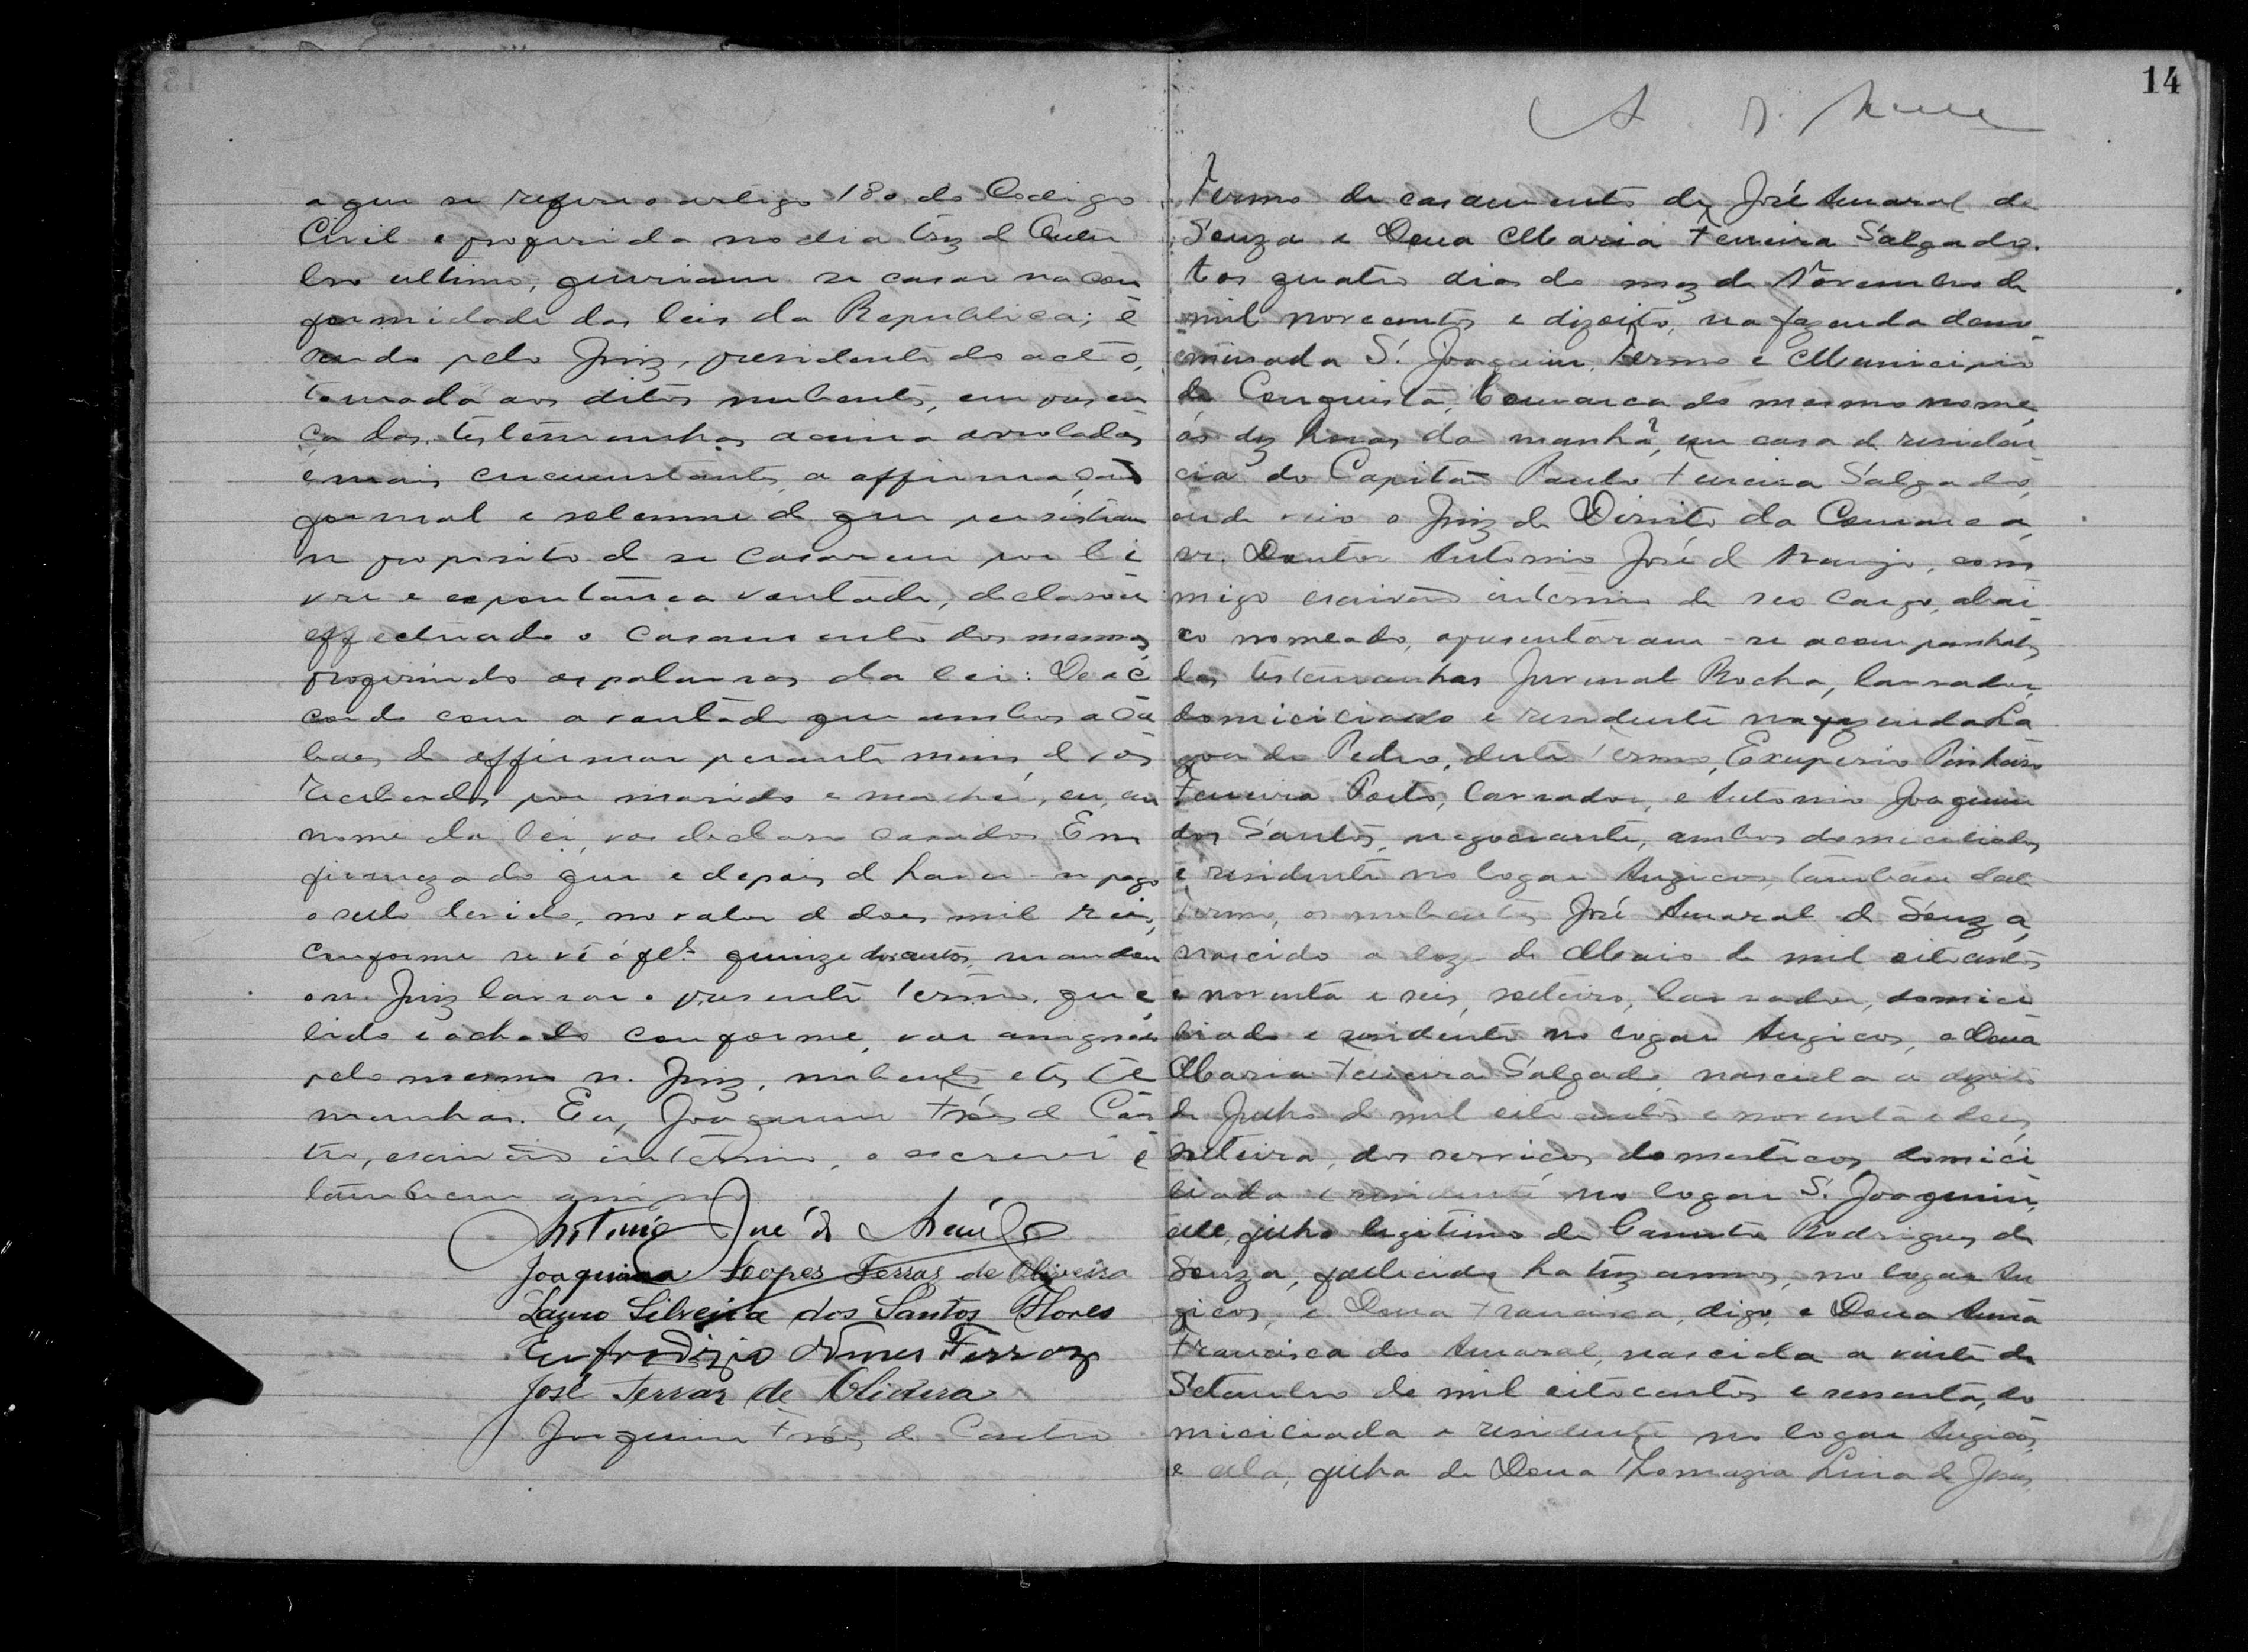 a que se refere o artigo 180 do Codigo
Civil e proferida no dia trez de Outu
bro ultimo, queriam se casar na con
formidade das leis da Republica; e
sendo pelo Juiz, presidente do acto,
tomada aos ditos nubentes, em presen
ça das testemunhas acima arroladas
e mais circumstantes, a affirmação
formal e solemne de que persistiam
no proposito de se casarem por li
vre e espontanea vontade, declarou
effectuado o casamento dos mesmos,
proferindo as palavras da lei: De ac
cordo com a vontade que ambos aca
baes de affirmar perante mim, de vos
receberdes por marido e mulher, eu, em
nome da lei, vos declaro casados. Em
firmeza do que e depois de haver-se pago
o sello devido, no valor de dois mil reis,
conforme se vê á fls. quinze dos autos, mandou
o sr. Juiz lavrar o presente termo, que,
lido e achado conforme, vae assignado
pelo mesmo sr. Juiz, nubentes e teste
munhas. Eu, Joaquim Fróes de Cas
tro, escrivão interino, o escrevi e
tambem assigno.
Antonio José de Araújo
Joaquina Lopes Ferraz de Oliveira
Lauro Silveira dos Santos Flores
Eufrodizio Nunes Ferraz
José Ferraz de Olivera
Joaquim Fróes de Castro
14
Termo de casamento de José Amaral de
Souza e Dona Maria Ferreira Salgado.
Aos quatro dias do mez de Novembro de
mil novecentos e dizoito, na fazenda deno
minada S. Joaquim, Termo e Municipio
da Conquista, Comarca do mesmo nome,
ás dez horas da manhã, em casa de residen
cia do Capitão Paulo Ferreira Salgado,
onde veio o Juiz de Direito da Comarca,
sr. Doutor Antonio José de Araujo, com
migo escrivão interino de seo cargo, abai
xo nomeado, apresentaram-se acompanhados
das testemunhas Juvenal Rocha, lavrador,
domiciliado e residente na fazenda La
goa de Pedro, deste Termo, Exuperio Pinheiro
Ferreira Porto, lavrador, e Antonio Joaquim
dos Santos, negociante, ambos domiciliados
e residentes no logar Angicos, tambem deste
Termo, os nubentes José Amaral de Souza,
nascido a doze de Maio de mil oitocentos
e noventa e seis, solteiro, lavrador, domici
liado e residente no logar Angicos, e Dona
Maria Ferreira Salgado, nascida a dezoito
de Julho de mil oitocentos e noventa e dois,
solteira, dos serviços domesticos, domici
liada e residente no logar S. Joaquim,
elle, filho legitimo de Canuto Rodrigues de
Souza, fallecido ha trez annos, no logar An
gicos, e Dona Francisca, digo, e Dona Anna
Francisca do Amaral, nascida a vinte de
Setembro de mil oitocentos e sessenta, do
miciliada e residente no logar Angicos,
e ella, filha de Dona Thomazia Lina de Jesus,